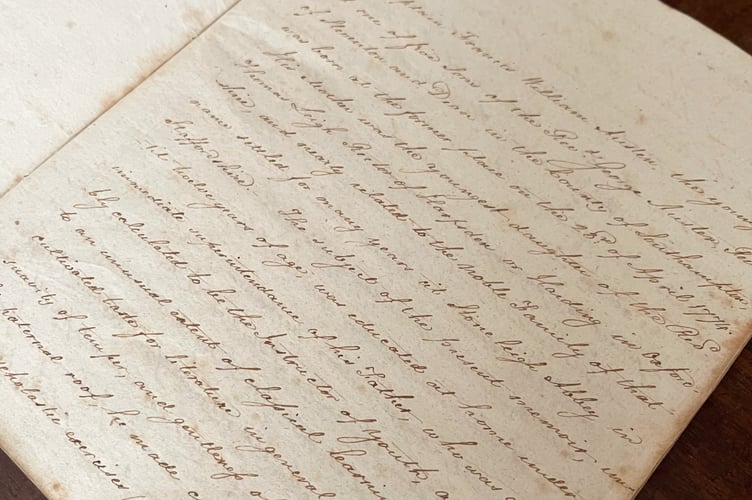 Francis William Austen the young
one of five sons of the Revd. George Austen
of and Dean in the County of Southampton
was born at the former place on the 23d. of April 1774
His Mother was the youngest daughter of the Revd
Thomas Leigh Rector of or Harding in Oxford
shire and nearly related to the Noble Family of that
name settled for many years at Stone leigh Abbey in
Staffordshire. The subject of the present memoir, un
til years of age, was educated at home under
immediate superintendance of his Father, who was
bly calculated to be the Instructor of youth, a
to an unusual extent of classical learning
cultivated taste for literature in general
suavity of temper, and gentleness o
paternal roof, he made c
scholastic exercises